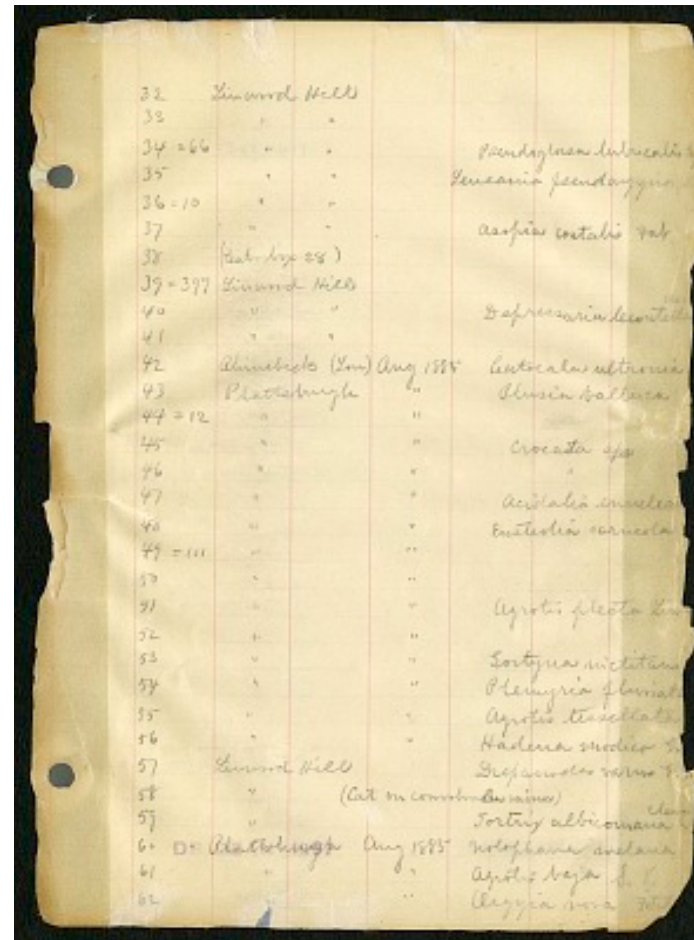 32 Linwood Hill
33 " "
34 = 66 " " Pseudoglossa lubricalis
35 " " Leucania pseudargyria
36 = 10 " "
37 " " Asopia costalis Fab
38 (Cat. box 28)
39 = 397 Linwood Hill
40 " " Depressaria lecontella
41 " "
42 Rhinebeck (Low) Aug 1885 Catocala ultronia
43 Plattsburgh " Plusia balluca
44 = 12 " "
45 " " Crocata
46 " " "
47 " " Acidalia
48 " " Eustrotia carneola
49 = 111 " "
50 " "
51 " " Agrotis plecta Lin
52 " "
53 " " Gortyna nictitans
54 " " Plemyria fluviata
55 " " Agrotis tessellata
56 " " Hadena modica
57 Linwood Hill Drepanodes varus
58 " (Cat on
59 " Tortrix albicomana
60 Plattsburgh Aug 1885 Nolophana
61 " " Agrotis baja
62 " " Orgyia nova